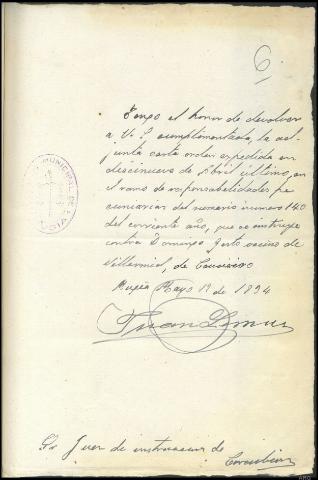 6
Tengo el honor de devolver
a V. S. cumplimentada, la ad-
junta carta orden expedida en
diecinueve de Abril último, en
el ramo de responsabilidades pe
cuniarias del sumario número 140
del corriente año, que se instruye
contra Domingo Justo vecino de
de
Mugía Mayo 19 de 1894
Juan
Sr. Juez de instruccion de
Corcubion
MUNICIPAL DE